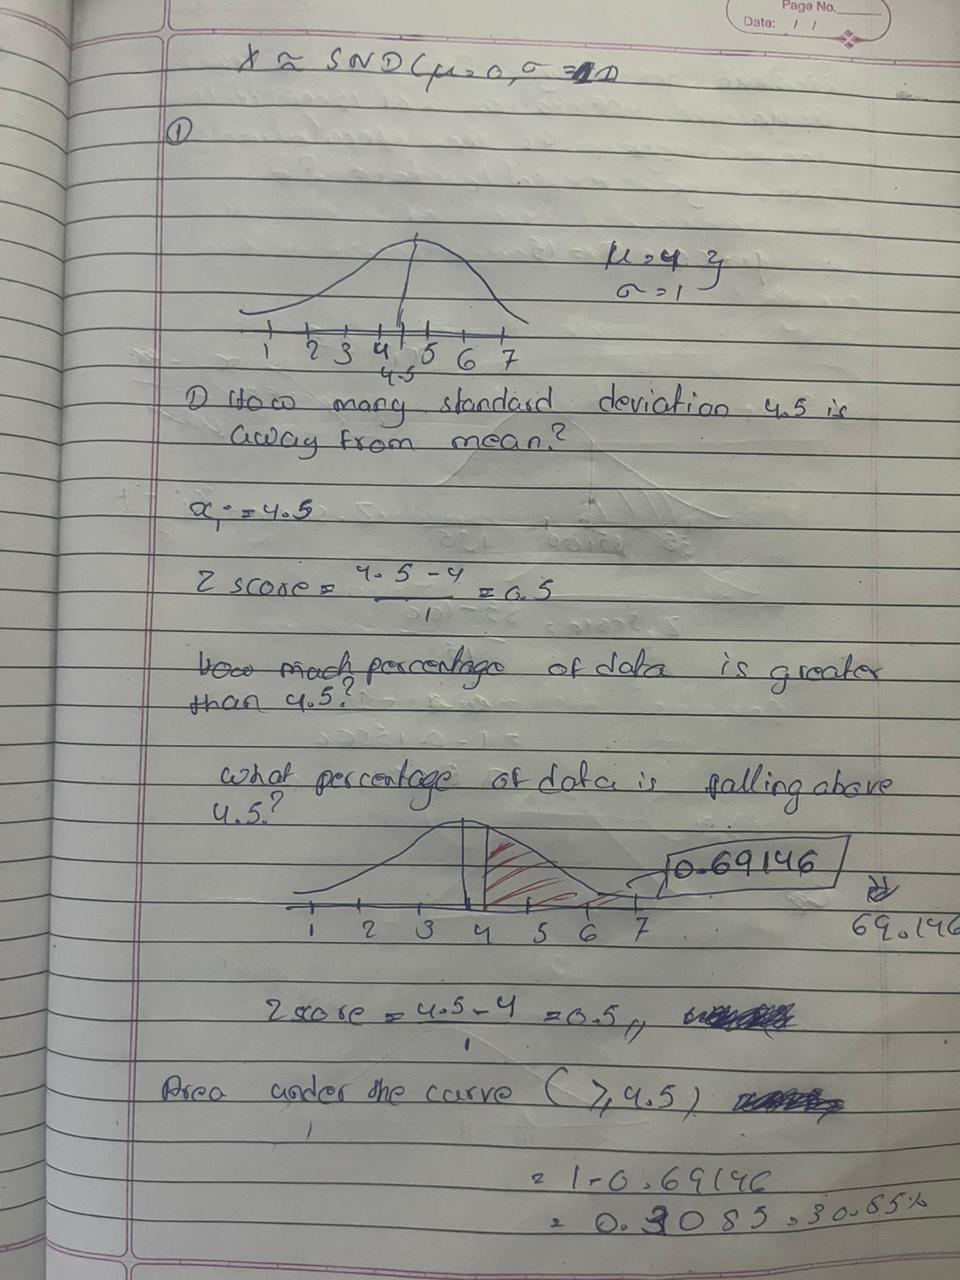 Page No.
Date: / /
X ≈ SND (μ=0, σ=1)
①
μ=4 }
σ=1
1 2 3 4 5 6 7
4.5
① How many standard deviation 4.5 is
away from mean?
xᵢ = 4.5
Z score = (4.5 - 4)/1 = 0.5
how much percentage of data is greater
than 4.5?
What percentage of data is falling above
4.5?
0.69146
1 2 3 4 5 6 7
69.146
Z score = (4.5 - 4)/1 = 0.5,,
Area under the curve (≥ 4.5)
= 1-0.69146
= 0.3085 = 30.85%